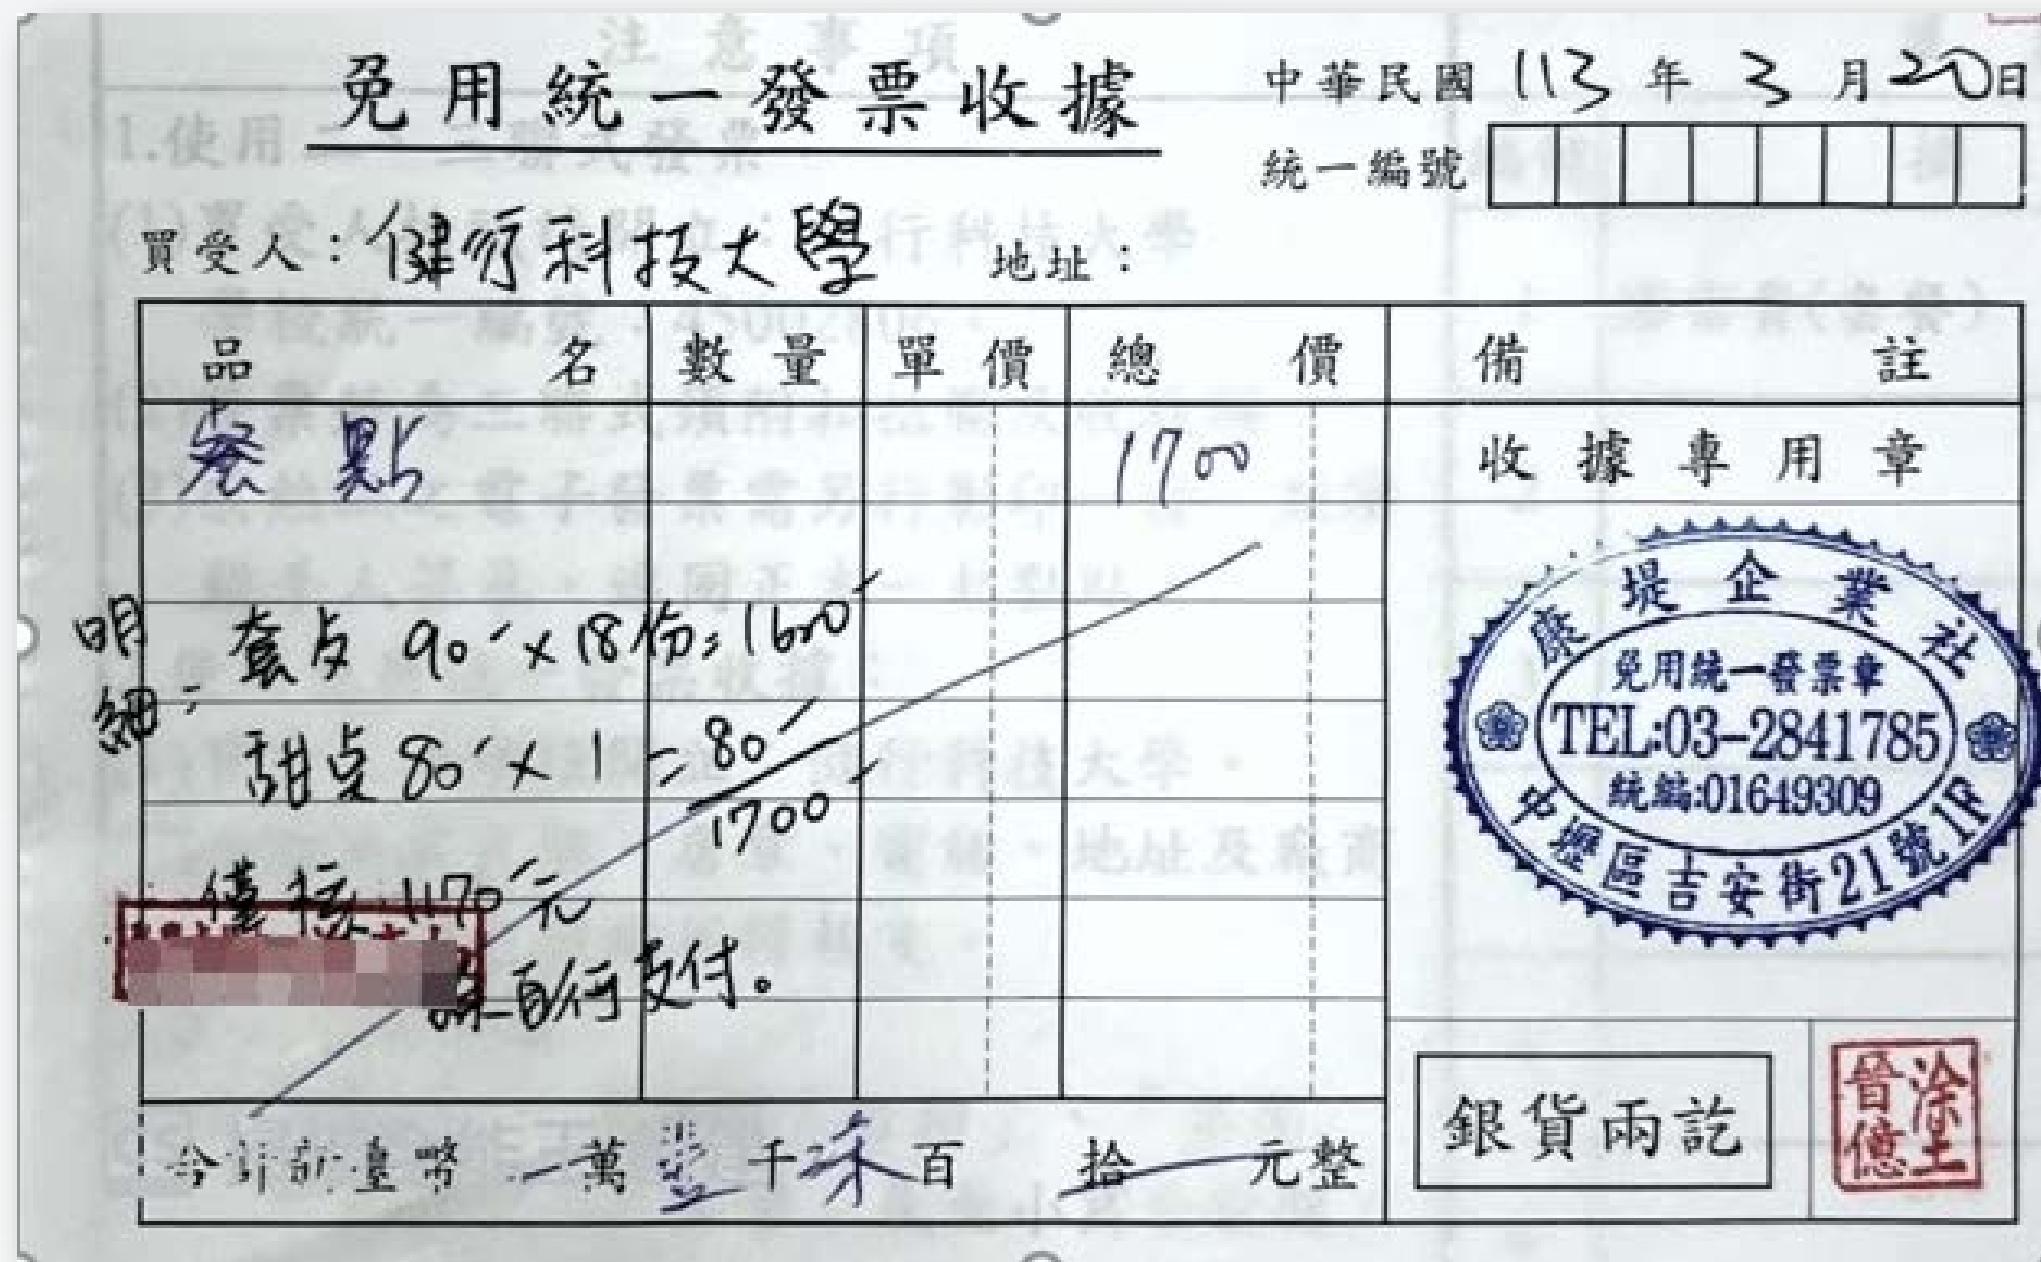 免用統一發票收據
中華民國 113 年 3 月 20 日
統一編號
買受人：健行科技大學 地址：
品名 數量 單價 總價 備註
餐點 1700
收據專用章
明細：
套点 90 × 18份 = 1620
甜点 80 × 1 = 80
1700
僅核 1170元
自行支付。
康堤企業社
免用統一發票章
TEL:03-2841785
統編:01649309
中壢區吉安街21號1F
合計新臺幣 萬 壹 千 柒 百 拾 元整
銀貨兩訖